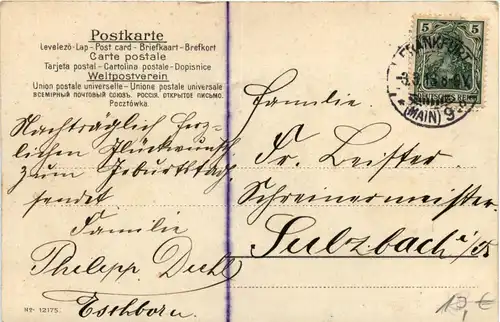 Postkarte
Levelező-Lap - Post card - Briefkaart - Brefkort
Carte postale
Tarjeta postal - Cartolina postale - Dopisnice
Weltpostverein
Union postale universelle - Unione postale universale
ВСЕМІРНЫЙ ПОЧТОВЫЙ СОЮЗЪ. РОССІЯ. ОТКРЫТОЕ ПИСЬМО.
Pocztówka.
Nachträglich herz-
lichen Glückwunsch
zum Geburtstag
sendet
Familie
Philipp Diehl
Eschborn.
No. 12175.
5 5
DEUTSCHES REICH
FRANKFURT
(MAIN) 9
Familie
Fr. Leister
Schreinermeister
Sulzbach i/T
€